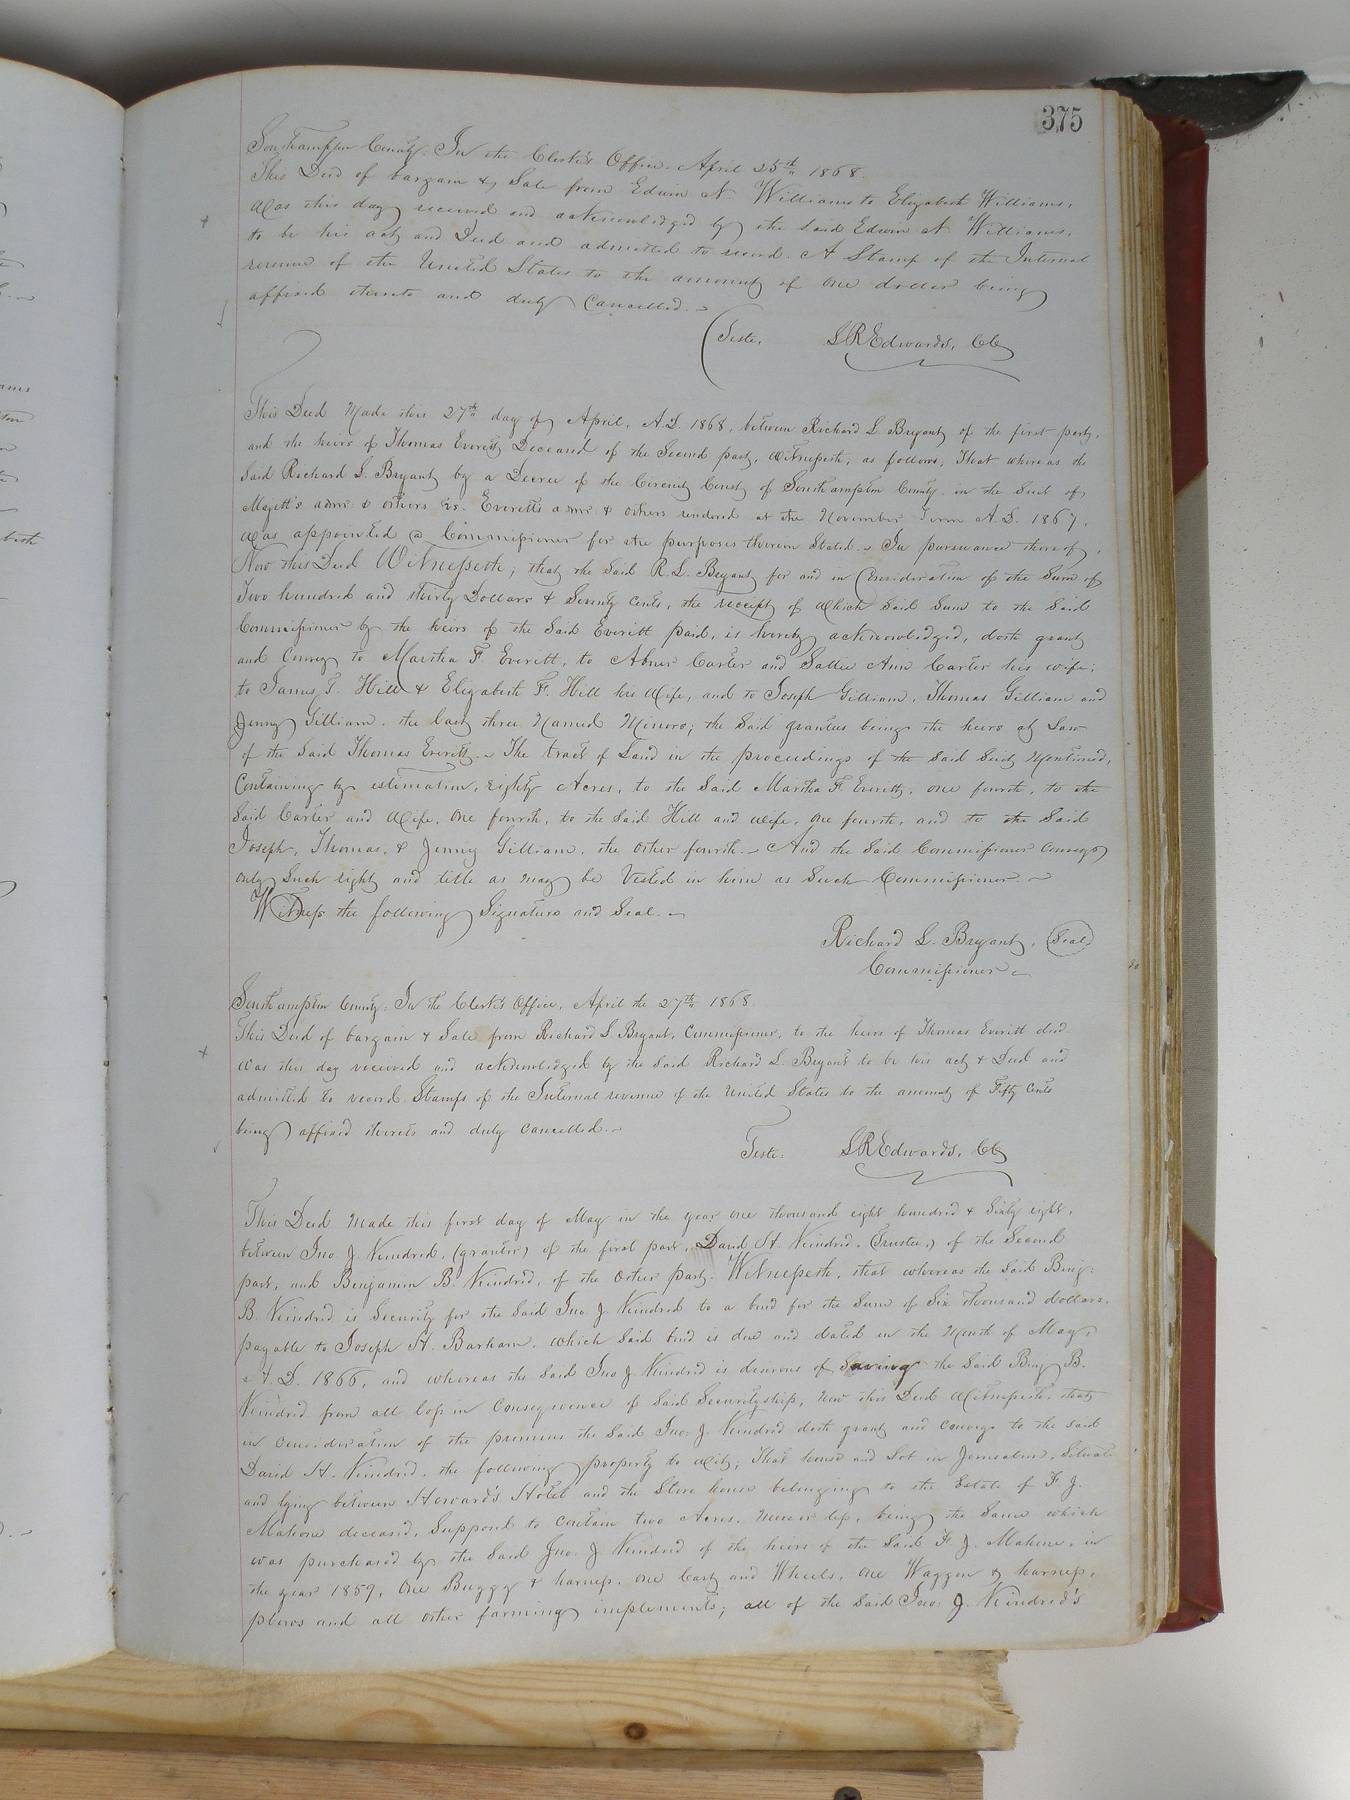 375
Southampton County. In the Clerk's Office. April 25th 1868.
This Deed of bargain & Sale from Edwin N. Williams to Elizabeth Williams,
Was this day received and acknowledged by the said Edwin N Williams,
to be his act and Deed and admitted to record. A Stamp of the Internal
revenue of the United States to the amount of one dollar being
affixed thereto and duly Cancelled.
Teste. L R Edwards, CC
This Deed Made this 27th day of April, A.D. 1868, between Richard L. Bryant of the first part,
and the heirs of Thomas Everett Deceased of the Second part, Witnesseth, as follows, That whereas the
Said Richard L. Bryant by a Decree of the Circuit Court of Southampton County in the Suit of
Magett's admr & others vs. Everett's admr & others rendered at the November Term A.D. 1867,
Was appointed a Commissioner for the purposes therein Stated. In pursuance thereof,
Now this Deed Witnesseth, that the Said R. L. Bryant for and in Consideration of the Sum of
Two hundred and thirty Dollars & Seventy Cents, the receipt of Which Said Sum to the Said
Commissioner by the heirs of the Said Everitt paid, is hereby acknowledged, doth grant
and Convey to Martha F. Everitt, to Abner Carter and Sallie Ann Carter his wife;
to James T. Hill & Elizabeth F. Hill his Wife, and to Joseph Gilliam, Thomas Gilliam and
Jenny Gilliam, the last three Named Minors; the Said grantees being the heirs at Law
of the Said Thomas Everitt. The tract of Land in the proceedings of the Said Suit Mentioned,
Containing by estimation, Eighty Acres, to the Said Martha F. Everitt, one fourth, to the
Said Carter and Wife, One fourth, to the Said Hill and wife, one fourth, and to the Said
Joseph, Thomas, & Jenny Gilliam, the other fourth. And the Said Commissioner Conveys
only Such right and title as may be Vested in him as Such Commissioner.
Witness the following Signature and Seal.
Richard L. Bryant, Seal
Commissioner
Southampton County: In the Clerk's Office, April the 27th 1868.
This Deed of bargain & Sale from Richard L Bryant, Commissioner, to the heirs of Thomas Everitt decd
Was this day received and acknowledged by the Said Richard L. Bryant to be his act & Deed and
admitted to record. Stamps of the Internal revenue of the United States to the amount of Fifty Cents
being affixed thereto and duly Cancelled.
Teste: L R Edwards, CC
This Deed Made this first day of May in the year one thousand eight hundred & Sixty eight,
between Jno. J. Kindred, (grantor) of the first part, David H. Kindred, (Trustee,) of the Second
part, and Benjamin B. Kindred, of the Other party. Witnesseth, that whereas the Said Benj:
B. Kindred is Security for the Said Jno. J. Kindred to a bond for the Sum of Six thousand dollars,
payable to Joseph H. Barham, which Said bond is due and dated in the Month of May,
A.D. 1866, and whereas the Said Jno J. Kindred is desirous of Saving the Said Benj B.
Kindred from all loss in Consequence of Said Securityship, Now this Deed Witnesseth, that
in Consideration of the premises the Said Jno. J. Kindred doth grant and convey to the said
David H. Kindred, the following property to Wit; That house and Lot in Jerusalem, Situate
and lying between Howard's Hotel and the Store house belonging to the Estate of F. J.
Mahone deceased, Supposed to Contain two Acres, more or less, being the Same which
was purchased by the Said Jno. J. Kindred of the heirs of the Said F. J. Mahone, in
the year 1859, One Buggy & harness, one Cart and Wheels, one Waggon & harness,
plows and all other farming implements; all of the Said Jno: J. Kindred's